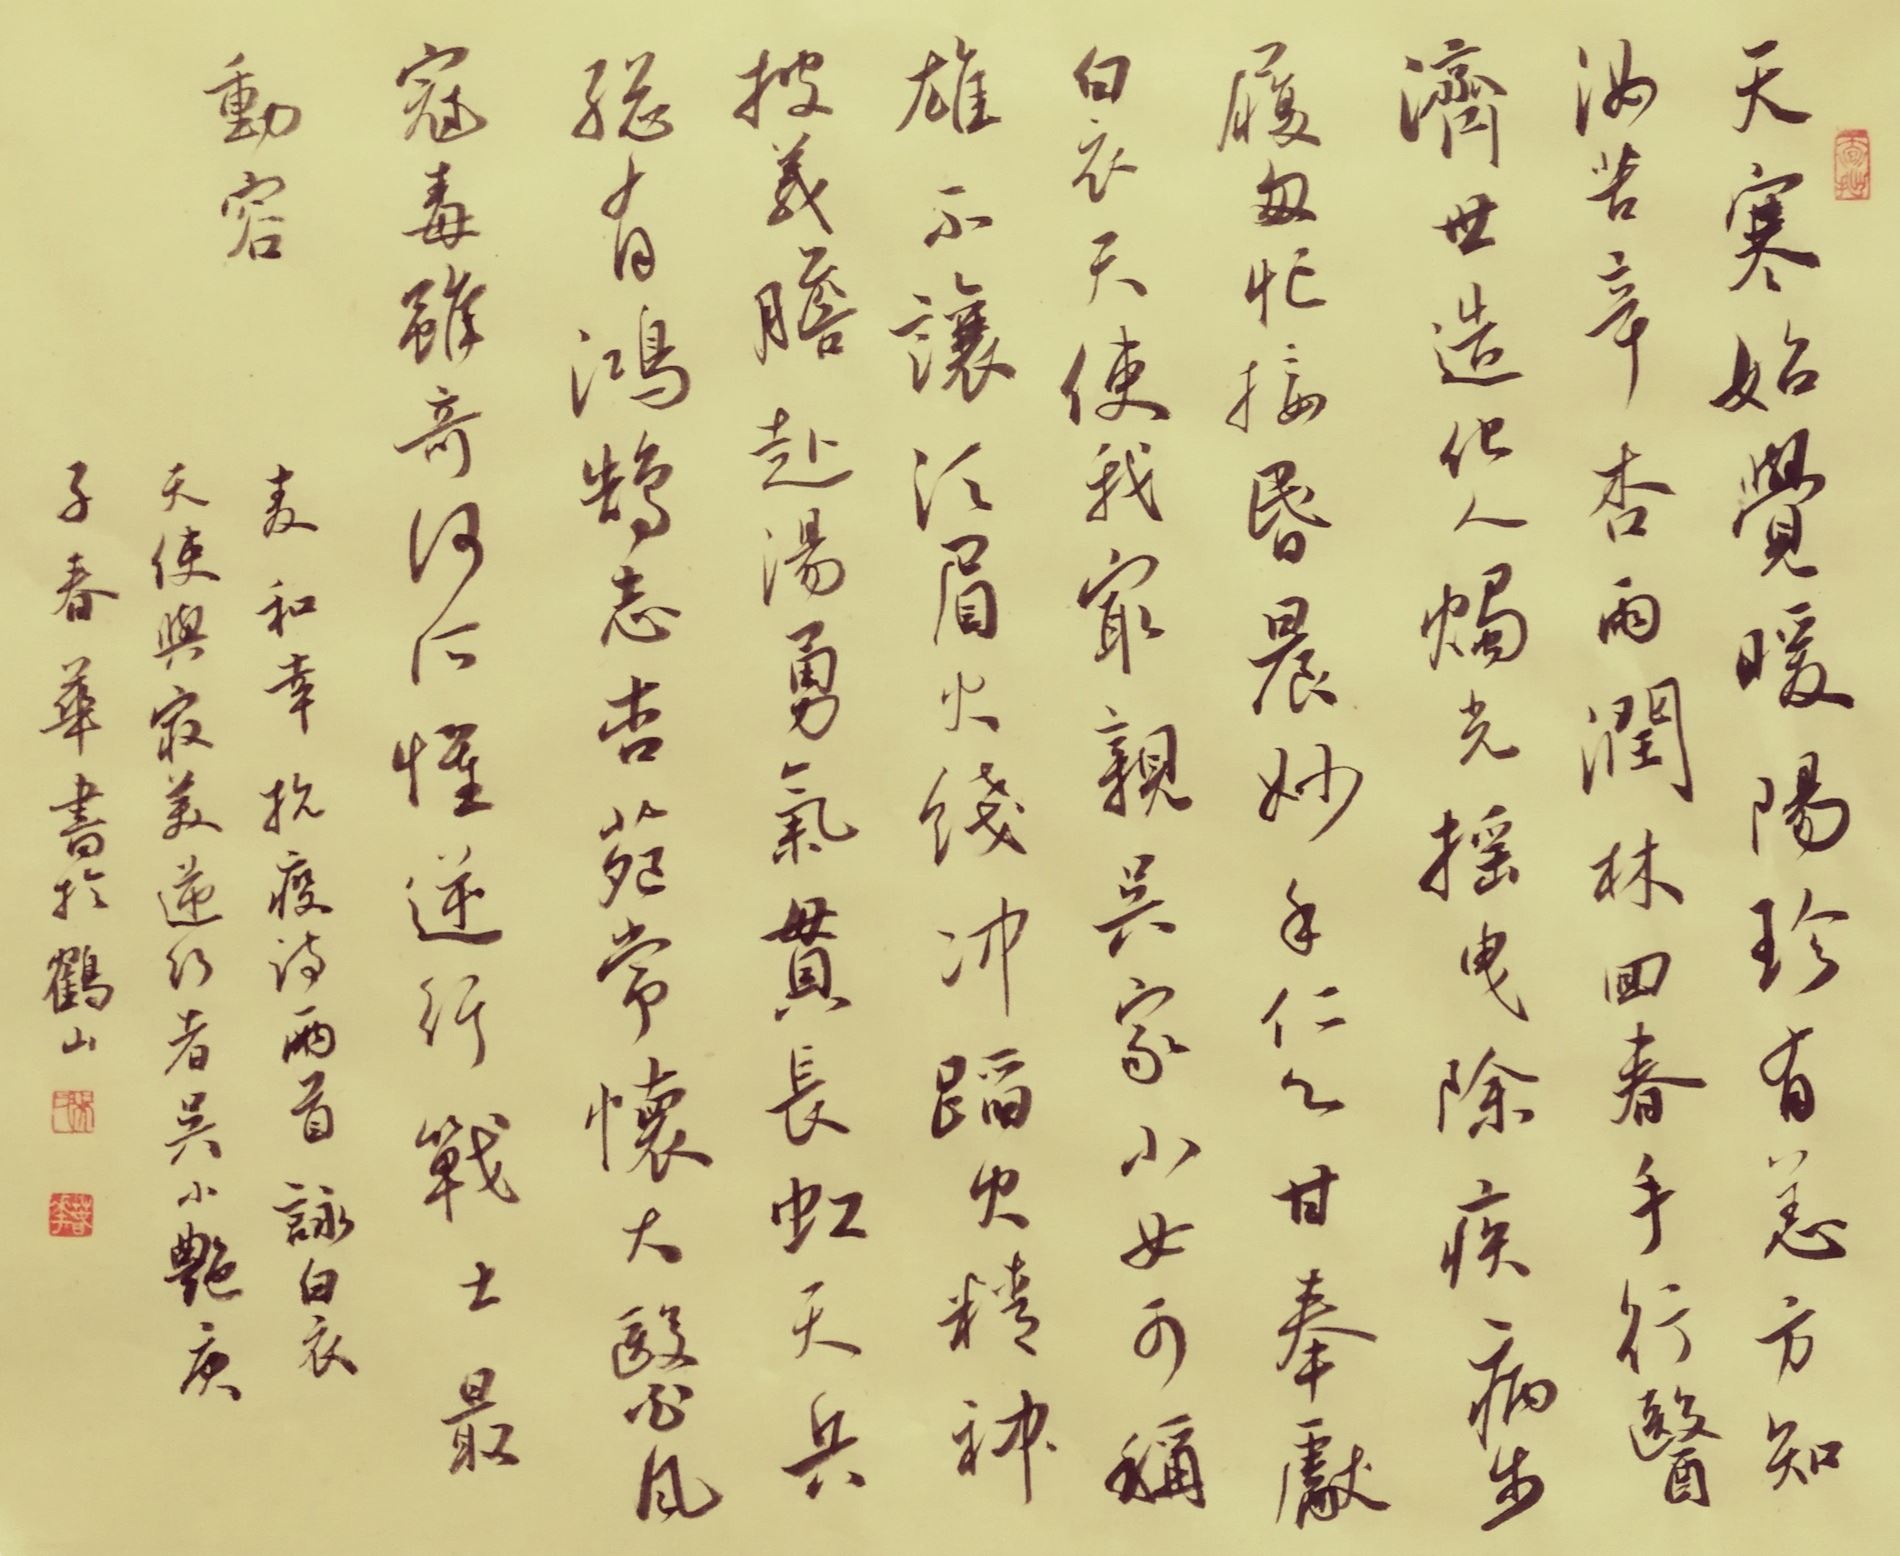 天寒始覺暖陽珍有恙方知
汝苦辛杏雨潤林回春手行醫
濟世造化人燭光摇曳除疾病步
履匆忙接昏晨妙手仁心甘奉獻
白衣天使我最親吳家小女可稱
雄不讓須眉火綫沖蹈火精神
披義膽赴湯勇氣貫長虹天兵
總有鴻鵠志杏苑常懷大醫風
冠毒雖奇何所懼逆行戰士最
動容
麦和幸抗疫诗兩首詠白衣
天使與最美逆行者吳小艷庚
子春華書於鶴山